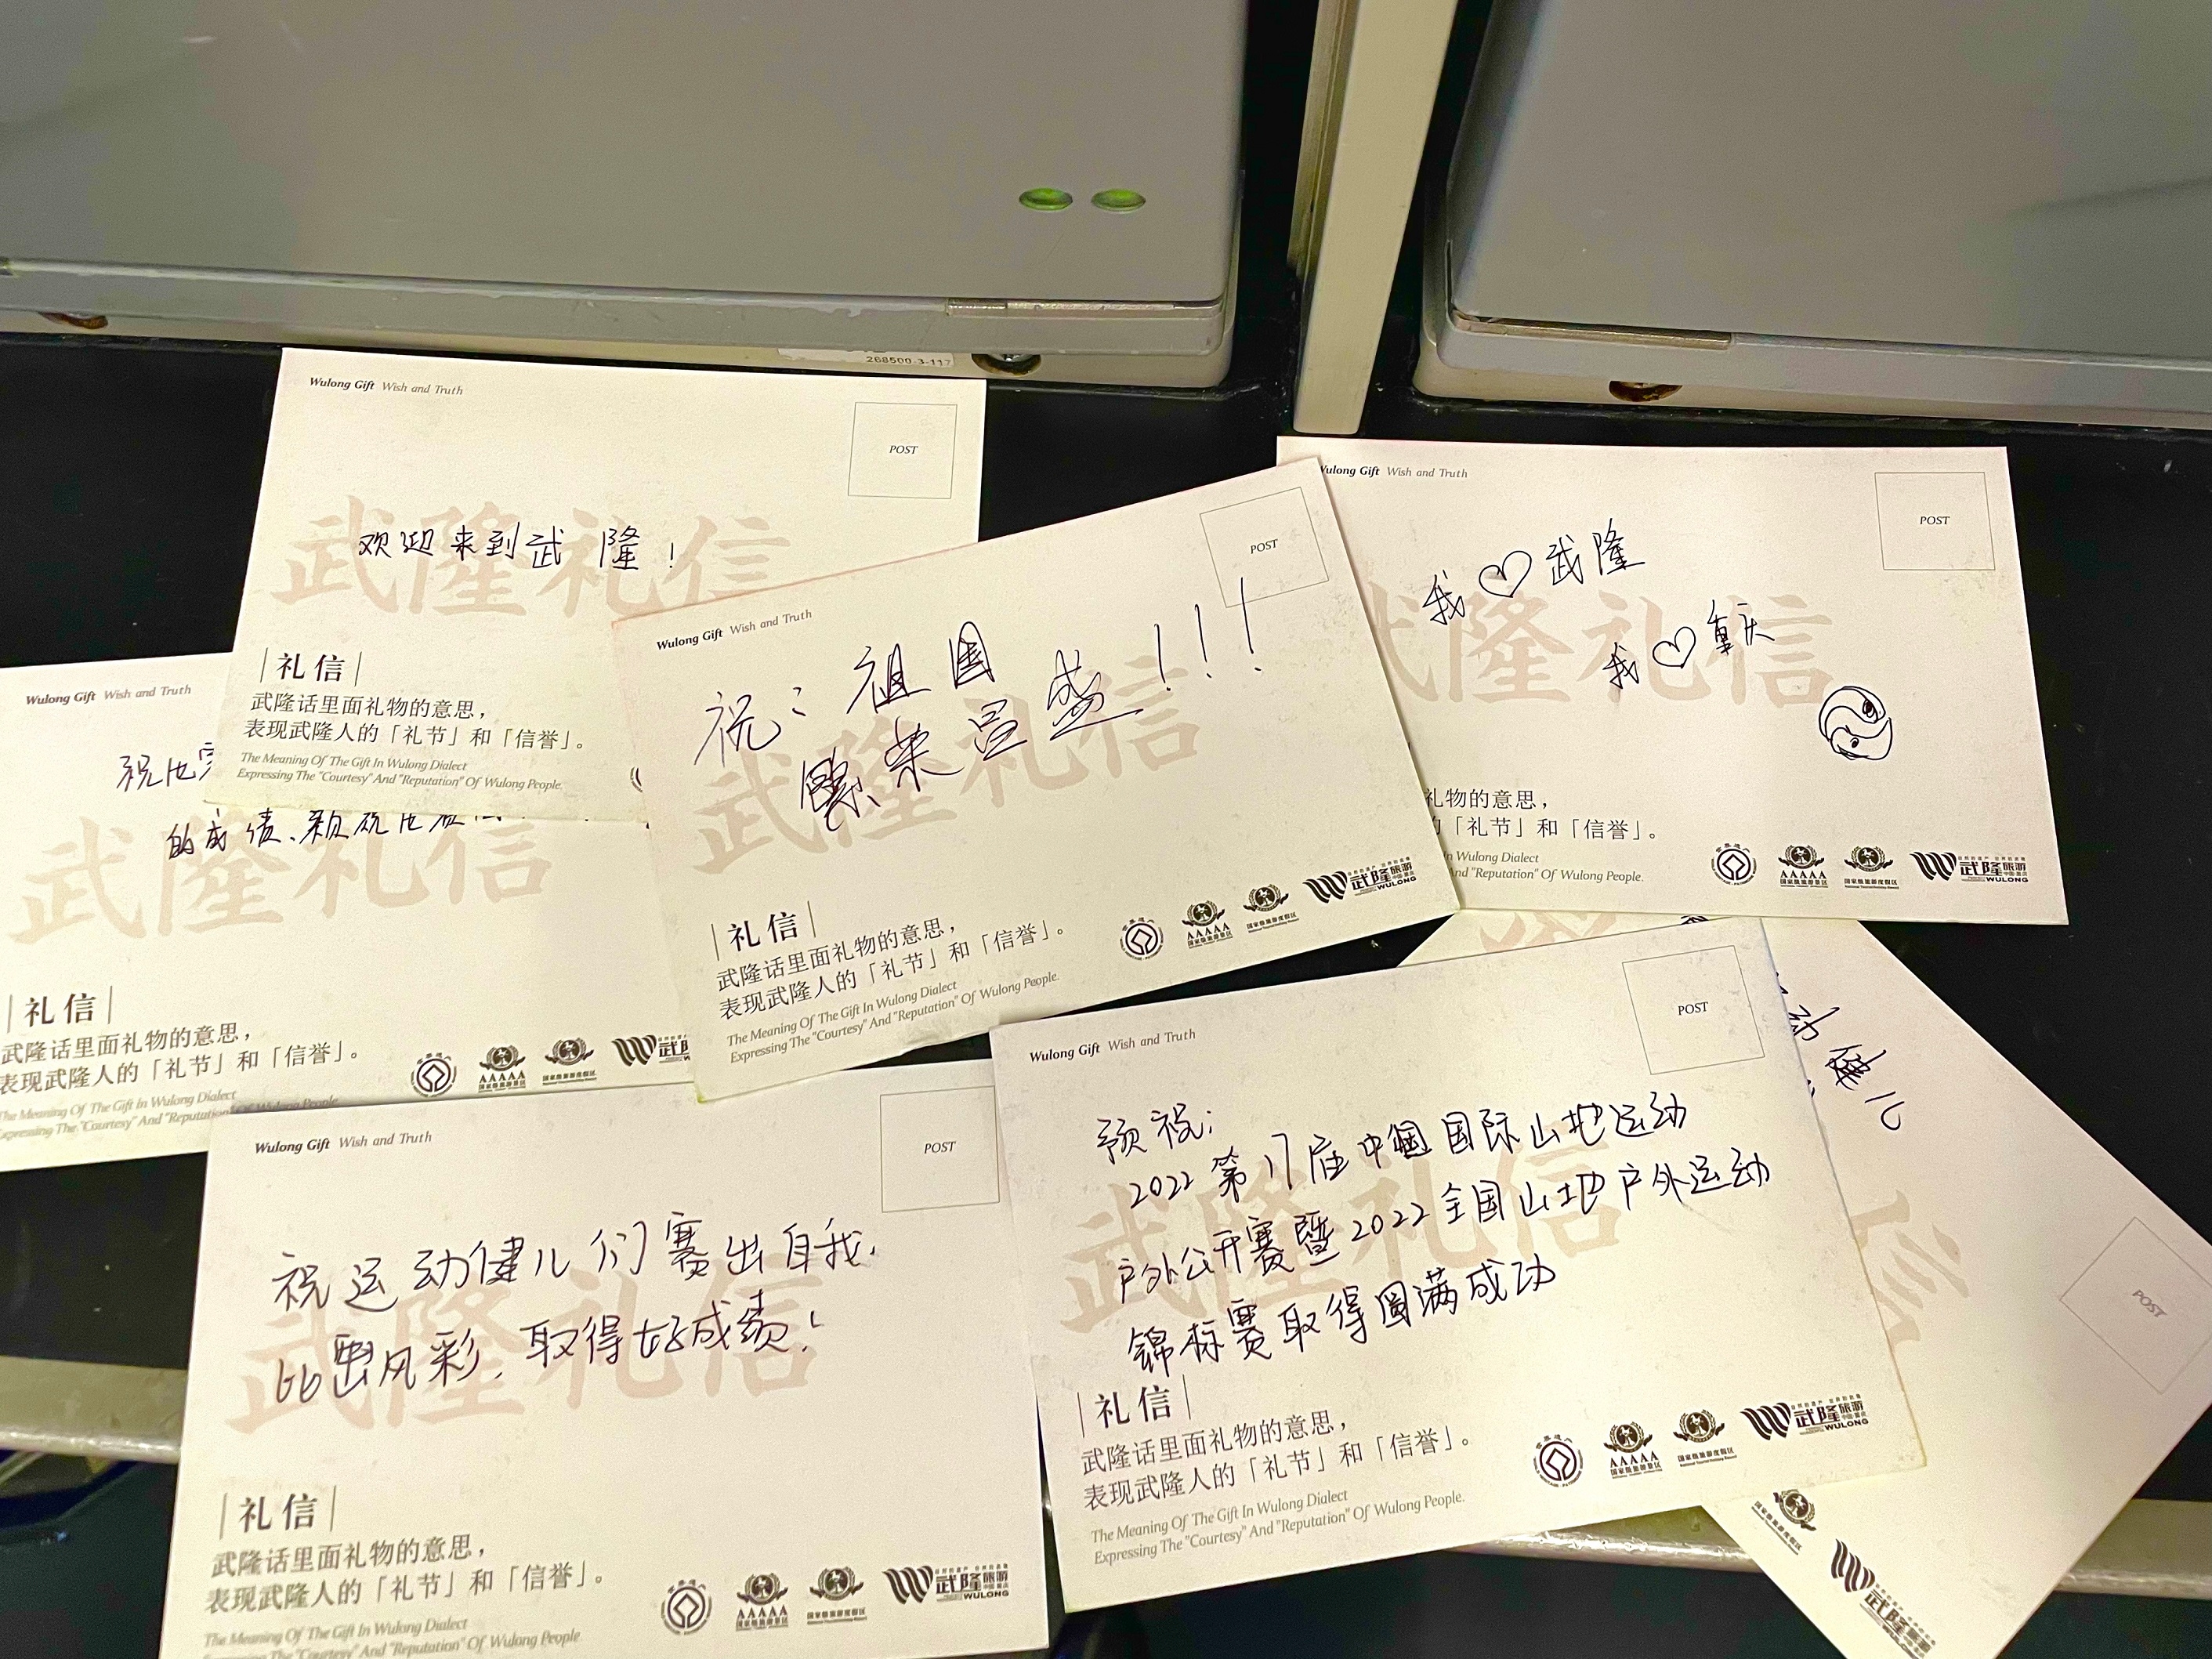 268500-3-117
Wulong Gift Wish and Truth
POST
武隆礼信
欢迎来到武隆!
礼信
武隆话里面礼物的意思，
表现武隆人的「礼节」和「信誉」。
The Meaning Of The Gift In Wulong Dialect
Expressing The "Courtesy" And "Reputation" Of Wulong People.
Wulong Gift Wish and Truth
POST
武隆礼信
祝:祖国
繁荣昌盛!!!
礼信
武隆话里面礼物的意思，
表现武隆人的「礼节」和「信誉」。
The Meaning Of The Gift In Wulong Dialect
Expressing The "Courtesy" And "Reputation" Of Wulong People.
AAAAA
国家级旅游景区
国家级旅游度假区
武隆旅游
WULONG
Wulong Gift Wish and Truth
POST
隆礼信
我♡武隆
我♡重庆
礼物的意思，
「礼节」和「信誉」。
In Wulong Dialect
And "Reputation" Of Wulong People.
AAAAA
国家级旅游景区
国家级旅游度假区
武隆旅游
WULONG
Wulong Gift Wish and Truth
祝
的成绩、
武隆礼信
礼信
武隆话里面礼物的意思，
表现武隆人的「礼节」和「信誉」。
The Meaning Of The Gift In Wulong Dialect
Expressing The "Courtesy" And "Reputation" Of Wulong People.
AAAAA
国家级旅游景区
国家级旅游度假区
武隆
Wulong Gift Wish and Truth
POST
武隆礼信
祝运动健儿们赛出自我,
比出风彩,取得好成绩!
礼信
武隆话里面礼物的意思，
表现武隆人的「礼节」和「信誉」。
The Meaning Of The Gift In Wulong Dialect
Expressing The "Courtesy" And "Reputation" Of Wulong People
AAAAA
国家级旅游景区
国家级旅游度假区
武隆旅游
WULONG
Wulong Gift Wish and Truth
POST
武隆礼信
预祝:
2022第17届中国国际山地运动
户外公开赛暨2022全国山地户外运动
锦标赛取得圆满成功
礼信
武隆话里面礼物的意思，
表现武隆人的「礼节」和「信誉」。
The Meaning Of The Gift In Wulong Dialect
Expressing The "Courtesy" And "Reputation" Of Wulong People.
AAAAA
国家级旅游景区
国家级旅游度假区
武隆旅游
WULONG
动健儿
POST
信
国家级旅游度假区
武隆旅游
WULONG